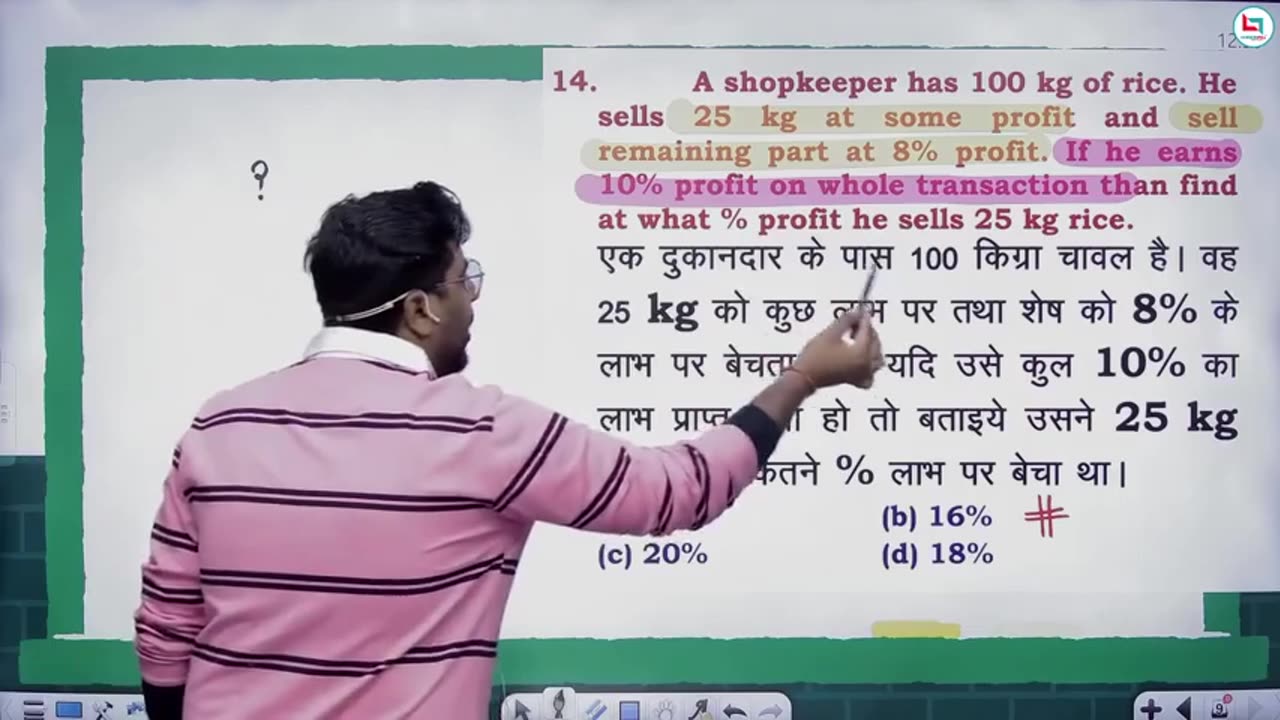 ?
14. A shopkeeper has 100 kg of rice. He
sells 25 kg at some profit and sell
remaining part at 8% profit. If he earns
10% profit on whole transaction than find
at what % profit he sells 25 kg rice.
एक दुकानदार के पास 100 किग्रा चावल है। वह
25 kg को कुछ लाभ पर तथा शेष को 8% के
लाभ पर बेचता यदि उसे कुल 10% का
लाभ प्राप्त हो तो बताइये उसने 25 kg
% लाभ पर बेचा था।
(b) 16%
(c) 20% (d) 18%